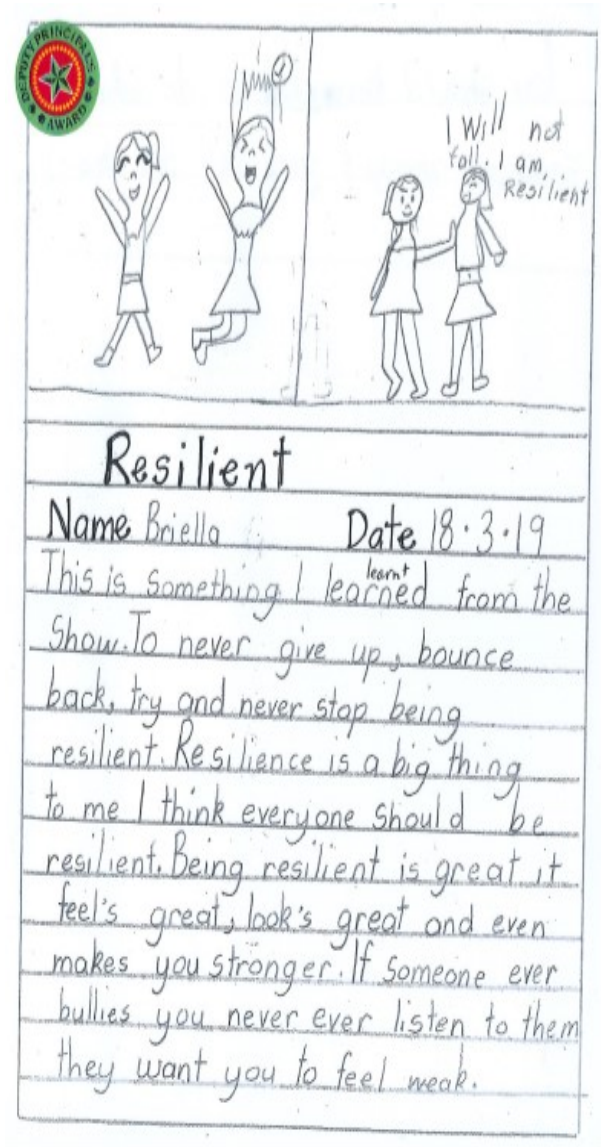 DEPUTY PRINCIPLES
AWARD
I Will not
fall. I am
Resilient
Resilient
Name Briella Date 18.3.19
learnt
This is something I learned from the
Show. To never give up, bounce
back, try and never stop being
resilient. Resilience is a big thing
to me I think everyone should be
resilient. Being resilient is great it
feel's great, look's great and even
makes you stronger. If someone ever
bullies you never ever listen to them
they want you to feel weak.